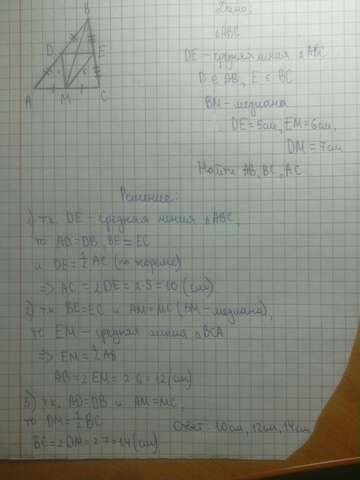 B
D
E
A
M
C
Дано:
△ABC
DE – средняя линия △ABC
D ∈ AB, E ∈ BC
BM – медиана
DE = 5см, EM = 6см,
DM = 7см
Найти AB, BC, AC
Решение:
1) т.к. DE – средняя линия △ABC,
то AD = DB, BE = EC
и DE = 1/2 AC (по теореме)
⇒ AC = 2DE = 2·5 = 10 (см)
2) т.к. BE = EC и AM = MC (BM – медиана),
то EM – средняя линия △BCA
⇒ EM = 1/2 AB
AB = 2EM = 2·6 = 12 (см)
3) т.к. AD = DB и AM = MC,
то DM = 1/2 BC
BC = 2DM = 2·7 = 14 (см)
Ответ 10см, 12см, 14см